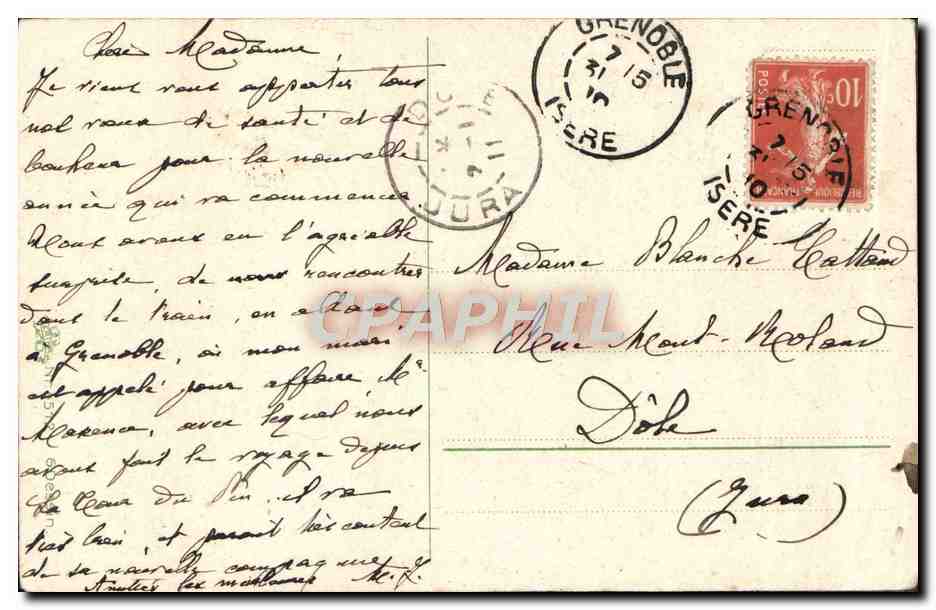 Chère Madame,
Je viens vous apporter tous
nos vœux de santé et de
bonheur pour la nouvelle
année qui va commencer
Nous avons eu l'agréable
surprise, de nous rencontrer
dans le train, en allant
à Grenoble, où mon mari
est appelé pour affaire Mr
Maxence, avec lequel nous
avons fait le voyage depuis
La Tour du Pin. il va
très bien, et parait très content
de sa nouvelle compagnie
Amitiés les meilleures M. J.
GRENOBLE
7 15
31
10
ISERE
JURA
10c
POSTES
REPUBLIQUE FRANÇAISE
GRENOBLE
7 15
31
10
ISERE
Madame Blanche
Rue Mont-Roland
Dôle
(Jura)
CPAPHIL